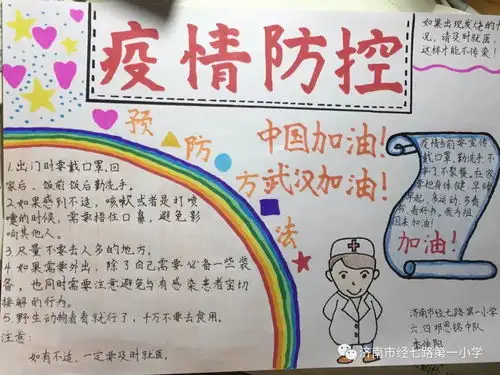 疫情防控
如果出现发烧的情
况，请及时就医，
这样才能不传染！
预防方法
中国加油！
武汉加油！
1.出门时要戴口罩，回
家后、饭前饭后勤洗手。
2.如果感到不适，咳嗽或者是打喷
嚏的时候，需要捂住口鼻，避免影
响其他人。
3.尽量不要去人多的地方。
4.如果需要外出，除了自己需要必备一些装
备。也同时需要注意避免与有感染患者密切
接解的行为。
5.野生动物看看就行了，千万不要去食用。
注意：
如有不适、一定要及时就医。
疫情当前要宣传
戴口罩，勤洗手，不
串门不聚餐。在家
要把身体健，早睡
早起，多运动，多看
书，看好书。我为祖
国来加油！
加油！
济南市经七路第一小学
六.四邓恩铭中队
济南市经七路第一小学